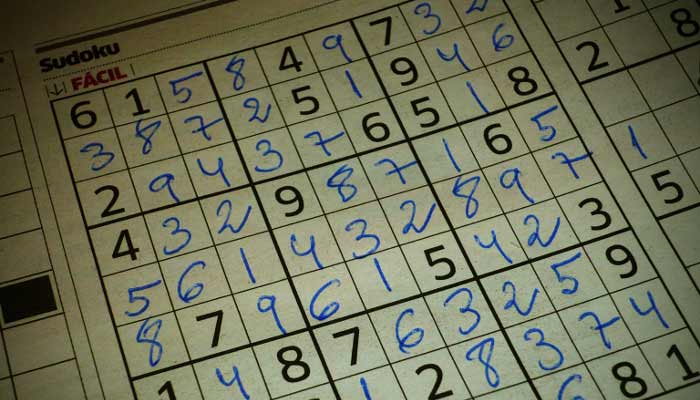 Sudoku
FÁCIL
6 1 5 8 4 9 7 3 2
3 8 7 2 5 1 9 4 6
2 9 4 3 7 6 5 1 8
4 3 2 9 8 7 1 6 5
5 6 1 4 3 2 8 9 7
8 7 9 6 1 5 4 2 3
1 4 8 7 6 3 2 5 9
1 2 8 3 7 4
6 8 1
1
2 8
1
5